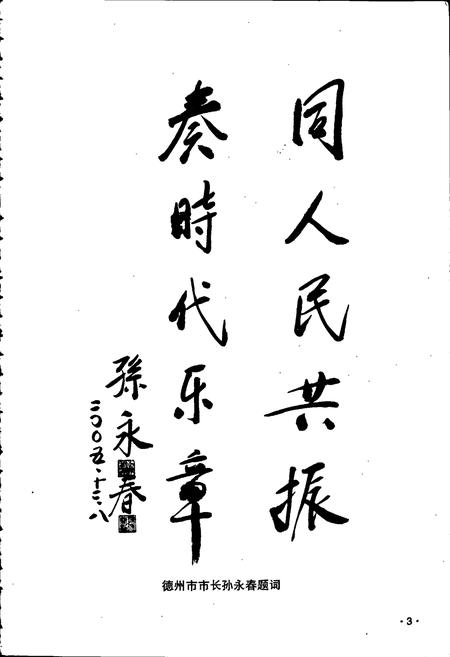 同人民共振
奏時代乐章
孫永春
二〇〇五·十二·八
德州市市长孙永春题词
·3·